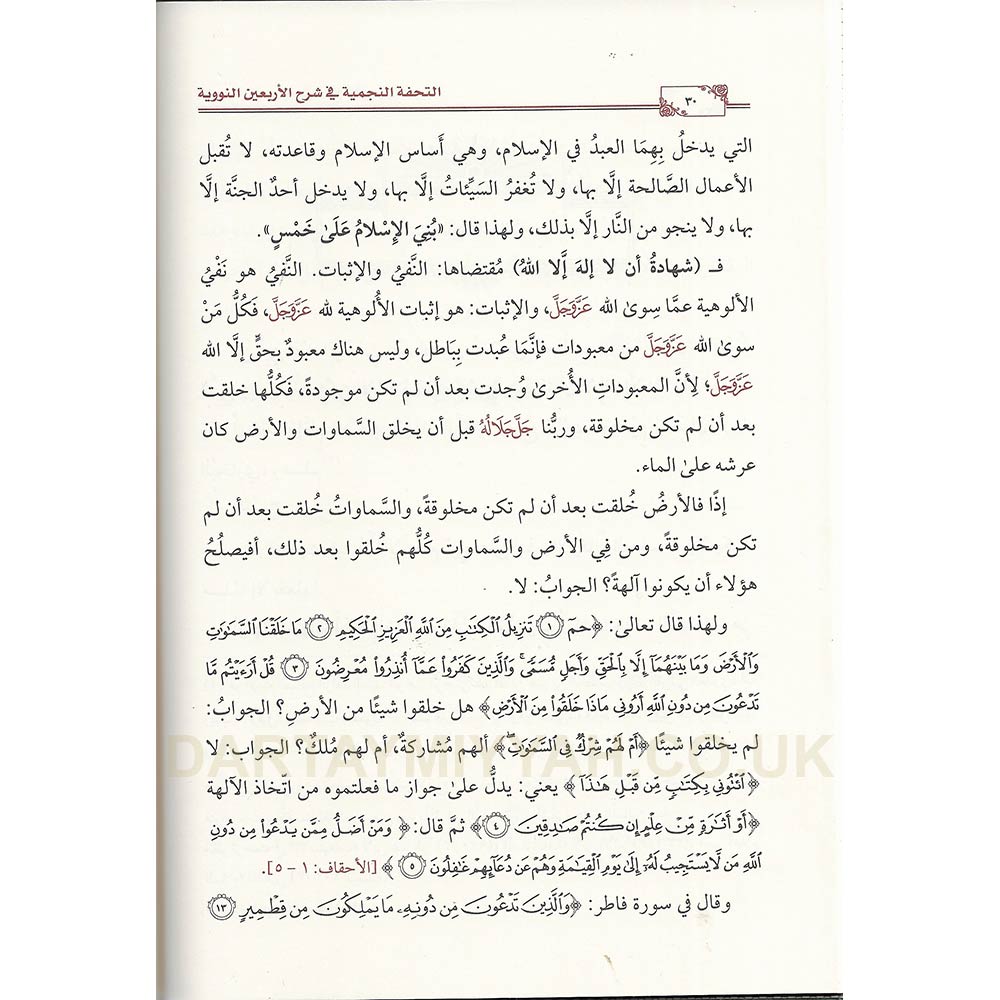 التحفة النجمية في شرح الأربعين النووية
٣٠
التي يدخلُ بِهِمَا العبدُ في الإسلام، وهي أَساس الإسلام وقاعدته، لا تُقبل
الأعمال الصَّالحة إلَّا بها، ولا تُغفرُ السَيِّئاتُ إلَّا بها، ولا يدخل أحدٌ الجنَّة إلَّا
بها، ولا ينجو من النَّار إلَّا بذلك، ولهذا قال: «بُنِيَ الإِسْلامُ عَلَىٰ خَمْسٍ».
فـ (شهادةُ أن لا إلهَ إَّلا اللهُ) مُقتضاها: النَّفيُ والإثبات. النَّفيُ هو نَفْيُ
الألوهية عمَّا سِوىٰ الله عَزَّوَجَلَّ، والإثبات: هو إثبات الأُلوهية لله عَزَّوَجَلَّ، فَكُلُّ مَنْ
سوىٰ الله عَزَّوَجَلَّ من معبودات فإنَّمَا عُبدت بِبَاطل، وليس هناك معبودٌ بحقٍّ إلَّا الله
عَزَّوَجَلَّ؛ لِأَنَّ المعبوداتِ الأُخرىٰ وُجدت بعد أن لم تكن موجودةً، فَكُلُّها خلقت
بعد أن لم تكن مخلوقة، وربُّنا جَلَّجَلَالُهُ قبل أن يخلق السَّماوات والأرض كان
عرشه علىٰ الماء.
إذًا فالأرضُ خُلقت بعد أن لم تكن مخلوقةً، والسَّماواتُ خُلقت بعد أن لم
تكن مخلوقةً، ومن فِي الأرض والسَّماوات كُلُّهم خُلقوا بعد ذلك، أفيصلُحُ
هؤلاء أن يكونوا آلهةً؟ الجوابُ: لا.
ولهذا قال تعالىٰ: ﴿حمٓ ١ تَنزِيلُ ٱلْكِتَٰبِ مِنَ ٱللَّهِ ٱلْعَزِيزِ ٱلْحَكِيمِ ٢ مَا خَلَقْنَا ٱلسَّمَٰوَٰتِ
وَٱلْأَرْضَ وَمَا بَيْنَهُمَآ إِلَّا بِٱلْحَقِّ وَأَجَلٍ مُّسَمًّى ۚ وَٱلَّذِينَ كَفَرُوا۟ عَمَّآ أُنذِرُوا۟ مُعْرِضُونَ ٣ قُلْ أَرَءَيْتُم مَّا
تَدْعُونَ مِن دُونِ ٱللَّهِ أَرُونِى مَاذَا خَلَقُوا۟ مِنَ ٱلْأَرْضِ﴾ هل خلقوا شيئًا من الأرضِ؟ الجوابُ:
لم يخلقوا شيئًا ﴿أَمْ لَهُمْ شِرْكٌ فِى ٱلسَّمَٰوَٰتِ ۖ﴾ ألهم مُشاركةٌ، أم لهم مُلكٌ؟ الجواب: لا
﴿ٱئْتُونِى بِكِتَٰبٍ مِّن قَبْلِ هَٰذَآ﴾ يعني: يدلُّ علىٰ جواز ما فعلتموه من اتّخاذ الآلهة
﴿أَوْ أَثَٰرَةٍ مِّنْ عِلْمٍ إِن كُنتُمْ صَٰدِقِينَ ٤﴾ ثمَّ قال: ﴿وَمَنْ أَضَلُّ مِمَّن يَدْعُوا۟ مِن دُونِ
ٱللَّهِ مَن لَّا يَسْتَجِيبُ لَهُۥٓ إِلَىٰ يَوْمِ ٱلْقِيَٰمَةِ وَهُمْ عَن دُعَآئِهِمْ غَٰفِلُونَ ٥﴾ [الأحقاف: ١ - ٥].
وقال في سورة فاطر: ﴿وَٱلَّذِينَ تَدْعُونَ مِن دُونِهِۦ مَا يَمْلِكُونَ مِن قِطْمِيرٍ ١٣
DARTAYMIYYAH.CO.UK